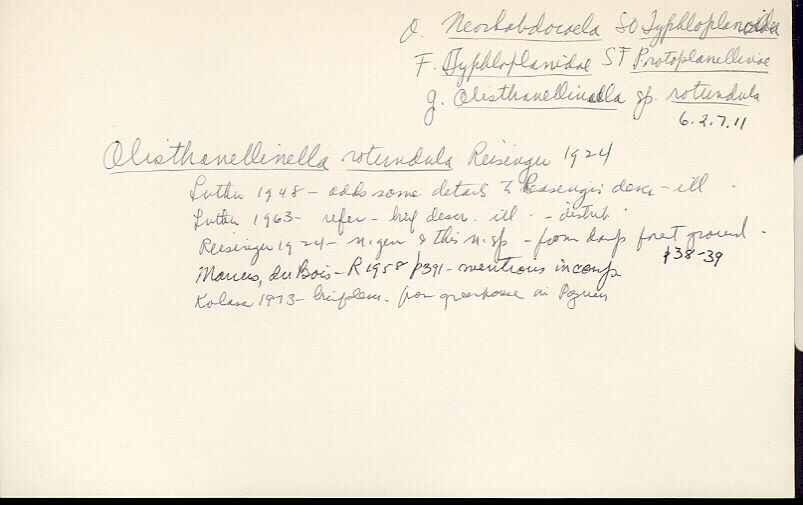 O. Neorhabdocoela SO Typhloplanoida
F. Typhloplanidae SF Protoplanellinae
g. Olisthanellinella sp. rotundula
6.2.7.11
Olisthanellinella rotundula Reisinger 1924
Luther 1948 - adds some details to Reisinger's descr - ill.
Luther 1963 - refer - brief descr. ill. - distrib.
Reisinger 1924 - n.gen & this n.sp - from damp forest ground - p38-39
Marcus, du Bois - R 1958 p391 - mentions in comp
Kolasa 1973 - brief descr. from greenhouse in Poznan